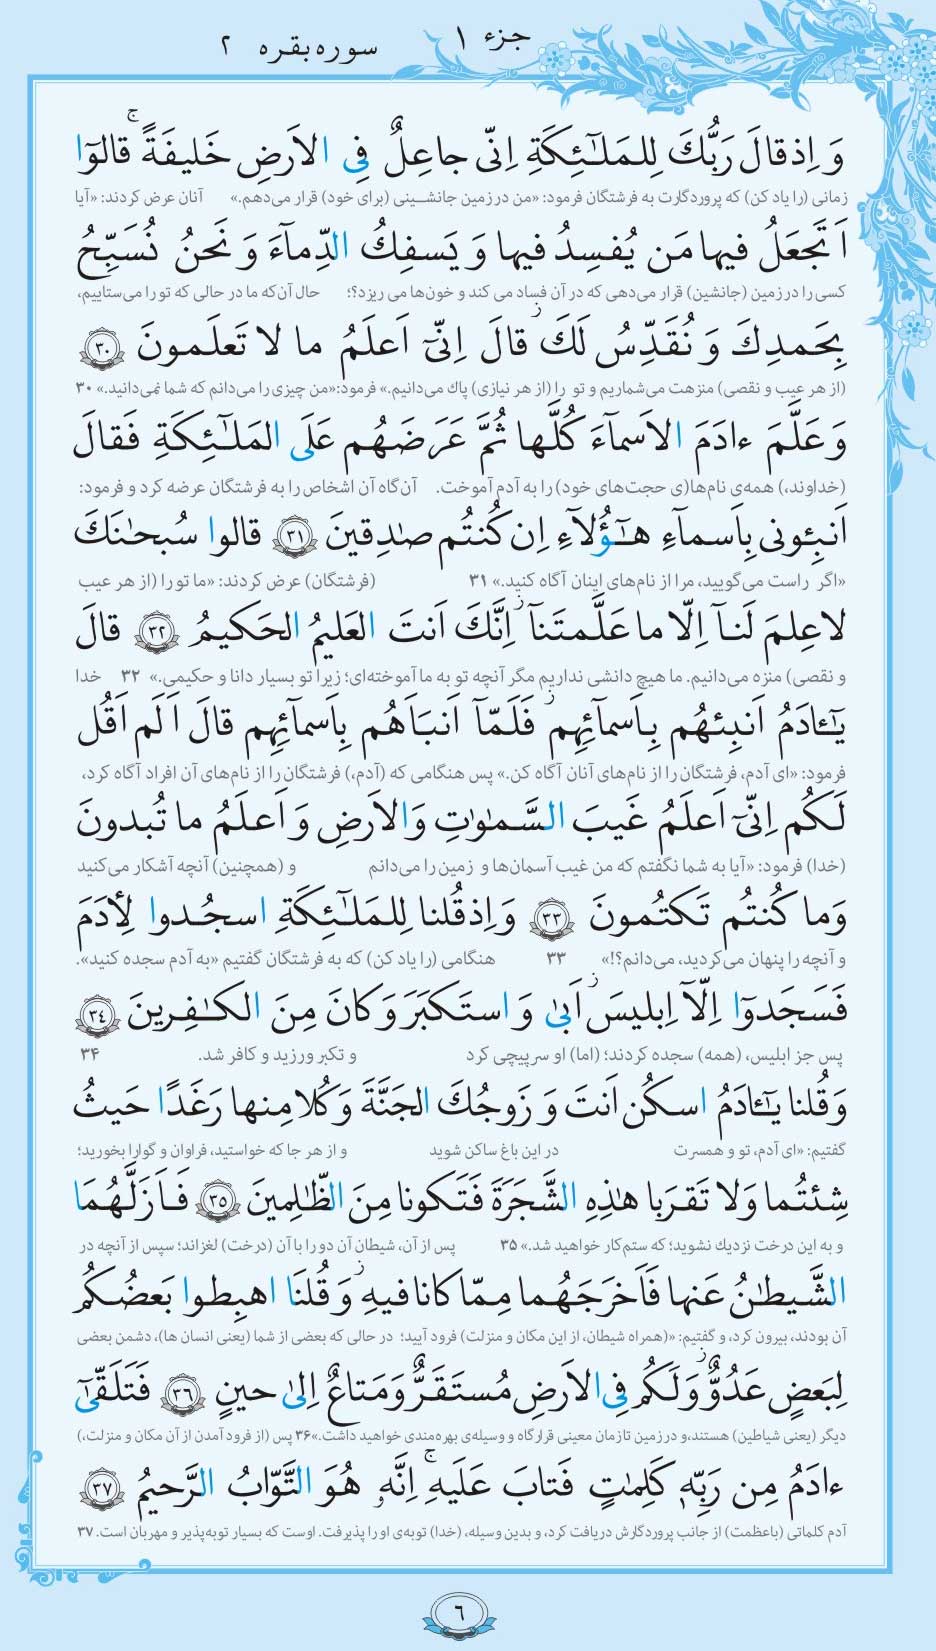 جزء ۱ سوره بقره ۲
وَ اِذ قالَ رَبُّكَ لِلمَلـٰٓئِكَةِ اِنّى جاعِلٌ فِى الاَرضِ خَليفَةً ۚ قالوٓا
زمانی (را یاد کن) که پروردگارت به فرشتگان فرمود: «من در زمین جانشـینی (برای خود) قرار می‌دهم.» آنان عرض کردند: «آیا
اَتَجعَلُ فيها مَن يُفسِدُ فيها وَ يَسفِكُ الدِّمآءَ وَ نَحنُ نُسَبِّحُ
کسی را در زمین (جانشین) قرار می‌دهی که در آن فساد می کند و خون‌ها می ریزد؟؛ حال آن‌که ما در حالی که تو را می‌ستاییم،
بِحَمدِكَ وَ نُقَدِّسُ لَكَ ۖ قالَ اِنّىٓ اَعلَمُ ما لا تَعلَمونَ ﴿٣٠﴾
(از هر عیب و نقصی) منزهت می‌شماریم و تو را (از هر نیازی) پاك می‌دانیم.» فرمود:«من چیزی را می‌دانم که شما نمی‌دانید.» ۳۰
وَ عَلَّمَ ءادَمَ الاَسمآءَ كُلَّها ثُمَّ عَرَضَهُم عَلَى المَلـٰٓئِكَةِ فَقالَ
(خداوند،) همه‌ی نام‌ها(ی حجت‌های خود) را به آدم آموخت. آن‌گاه آن اشخاص را به فرشتگان عرضه کرد و فرمود:
اَنبِئونى بِاَسمآءِ هـٰٓؤُلآءِ اِن كُنتُم صـٰدِقينَ ﴿٣١﴾ قالوا سُبحـٰنَكَ
«اگر راست می‌گویید، مرا از نام‌های اینان آگاه کنید.» ۳۱ (فرشتگان) عرض کردند: «ما تو را (از هر عیب
لا عِلمَ لَنـآ اِلّا ما عَلَّمتَنآ ۖ اِنَّكَ اَنتَ العَليمُ الحَكيمُ ﴿٣٢﴾ قالَ
و نقصی) منزه می‌دانیم. ما هیچ دانشی نداریم مگر آنچه تو به ما آموخته‌ای؛ زیرا تو بسیار دانا و حکیمی.» ۳۲ خدا
يـٰٓـٔادَمُ اَنبِئهُم بِـاَسمآئِهِم ۖ فَلَمّآ اَنبَاَهُم بِاَسمآئِهِم قالَ اَلَم اَقُل
فرمود: «ای آدم، فرشتگان را از نام‌های آنان آگاه کن.» پس هنگامی که (آدم،) فرشتگان را از نام‌های آن افراد آگاه کرد،
لَكُم اِنّىٓ اَعلَمُ غَيبَ السَّمـٰوٰتِ وَ الاَرضِ وَ اَعلَمُ ما تُبدونَ
(خدا) فرمود: «آیا به شما نگفتم که من غیب آسمان‌ها و زمین را می‌دانم و (همچنین) آنچه آشکار می‌کنید
وَ ما كُنتُم تَكتُمونَ ﴿٣٣﴾ وَ اِذ قُلنا لِلمَلـٰٓئِكَةِ اسجُدوا لِأدَمَ
و آنچه را پنهان می‌کردید، می‌دانم؟!» ۳۳ هنگامی (را یاد کن) که به فرشتگان گفتیم «به آدم سجده کنید».
فَسَجَدوٓا اِلّآ اِبليسَ ۖ اَبىٰ وَ استَكبَرَ وَ كانَ مِنَ الكـٰفِرينَ ﴿٣٤﴾
پس جز ابلیس، (همه) سجده کردند؛ (اما) او سرپیچی کرد و تکبر ورزید و کافر شد. ۳۴
وَ قُلنا يـٰٓـٔادَمُ اسكُن اَنتَ وَ زَوجُكَ الجَنَّةَ وَ كُلا مِنها رَغَدًا حَيثُ
گفتیم: «ای آدم، تو و همسرت در این باغ ساکن شوید و از هر جا که خواستید، فراوان و گوارا بخورید؛
شِئتُما وَ لا تَقرَبا هـٰذِهِ الشَّجَرَةَ فَتَكونا مِنَ الظّـٰلِمينَ ﴿٣٥﴾ فَـاَزَلَّهُمَا
و به این درخت نزدیك نشوید؛ که ستم‌کار خواهید شد.» ۳۵ پس از آن، شیطان آن دو را با آن (درخت) لغزاند؛ سپس از آنچه در
الشَّيطـٰنُ عَنها فَاَخرَجَهُما مِمّا كانا فيهِ ۖ وَ قُلنَا اهبِطوا بَعضُكُم
آن بودند، بیرون کرد، و گفتیم: «(همراه شیطان، از این مکان و منزلت) فرود آیید؛ در حالی که بعضی از شما (یعنی انسان ها)، دشمن بعضی
لِبَعضٍ عَدُوٌّ ۖ وَ لَكُم فِى الاَرضِ مُستَقَرٌّ وَ مَتاعٌ اِلىٰ حينٍ ﴿٣٦﴾ فَتَلَقّىٰٓ
دیگر (یعنی شیاطین) هستند،و در زمین تا زمان معینی قرارگاه و وسیله‌ی بهره‌مندی خواهید داشت.»۳۶ پس (از فرود آمدن از آن مکان و منزلت،)
ءادَمُ مِن رَبِّهٖ كَلِمـٰتٍ فَتابَ عَلَيهِ ۚ اِنَّهٗ هُوَ التَّوّابُ الرَّحيمُ ﴿٣٧﴾
آدم کلماتی (باعظمت) از جانب پروردگارش دریافت کرد، و بدین وسیله، (خدا) توبه‌ی او را پذیرفت. اوست که بسیار توبه‌پذیر و مهربان است. ۳۷
٦